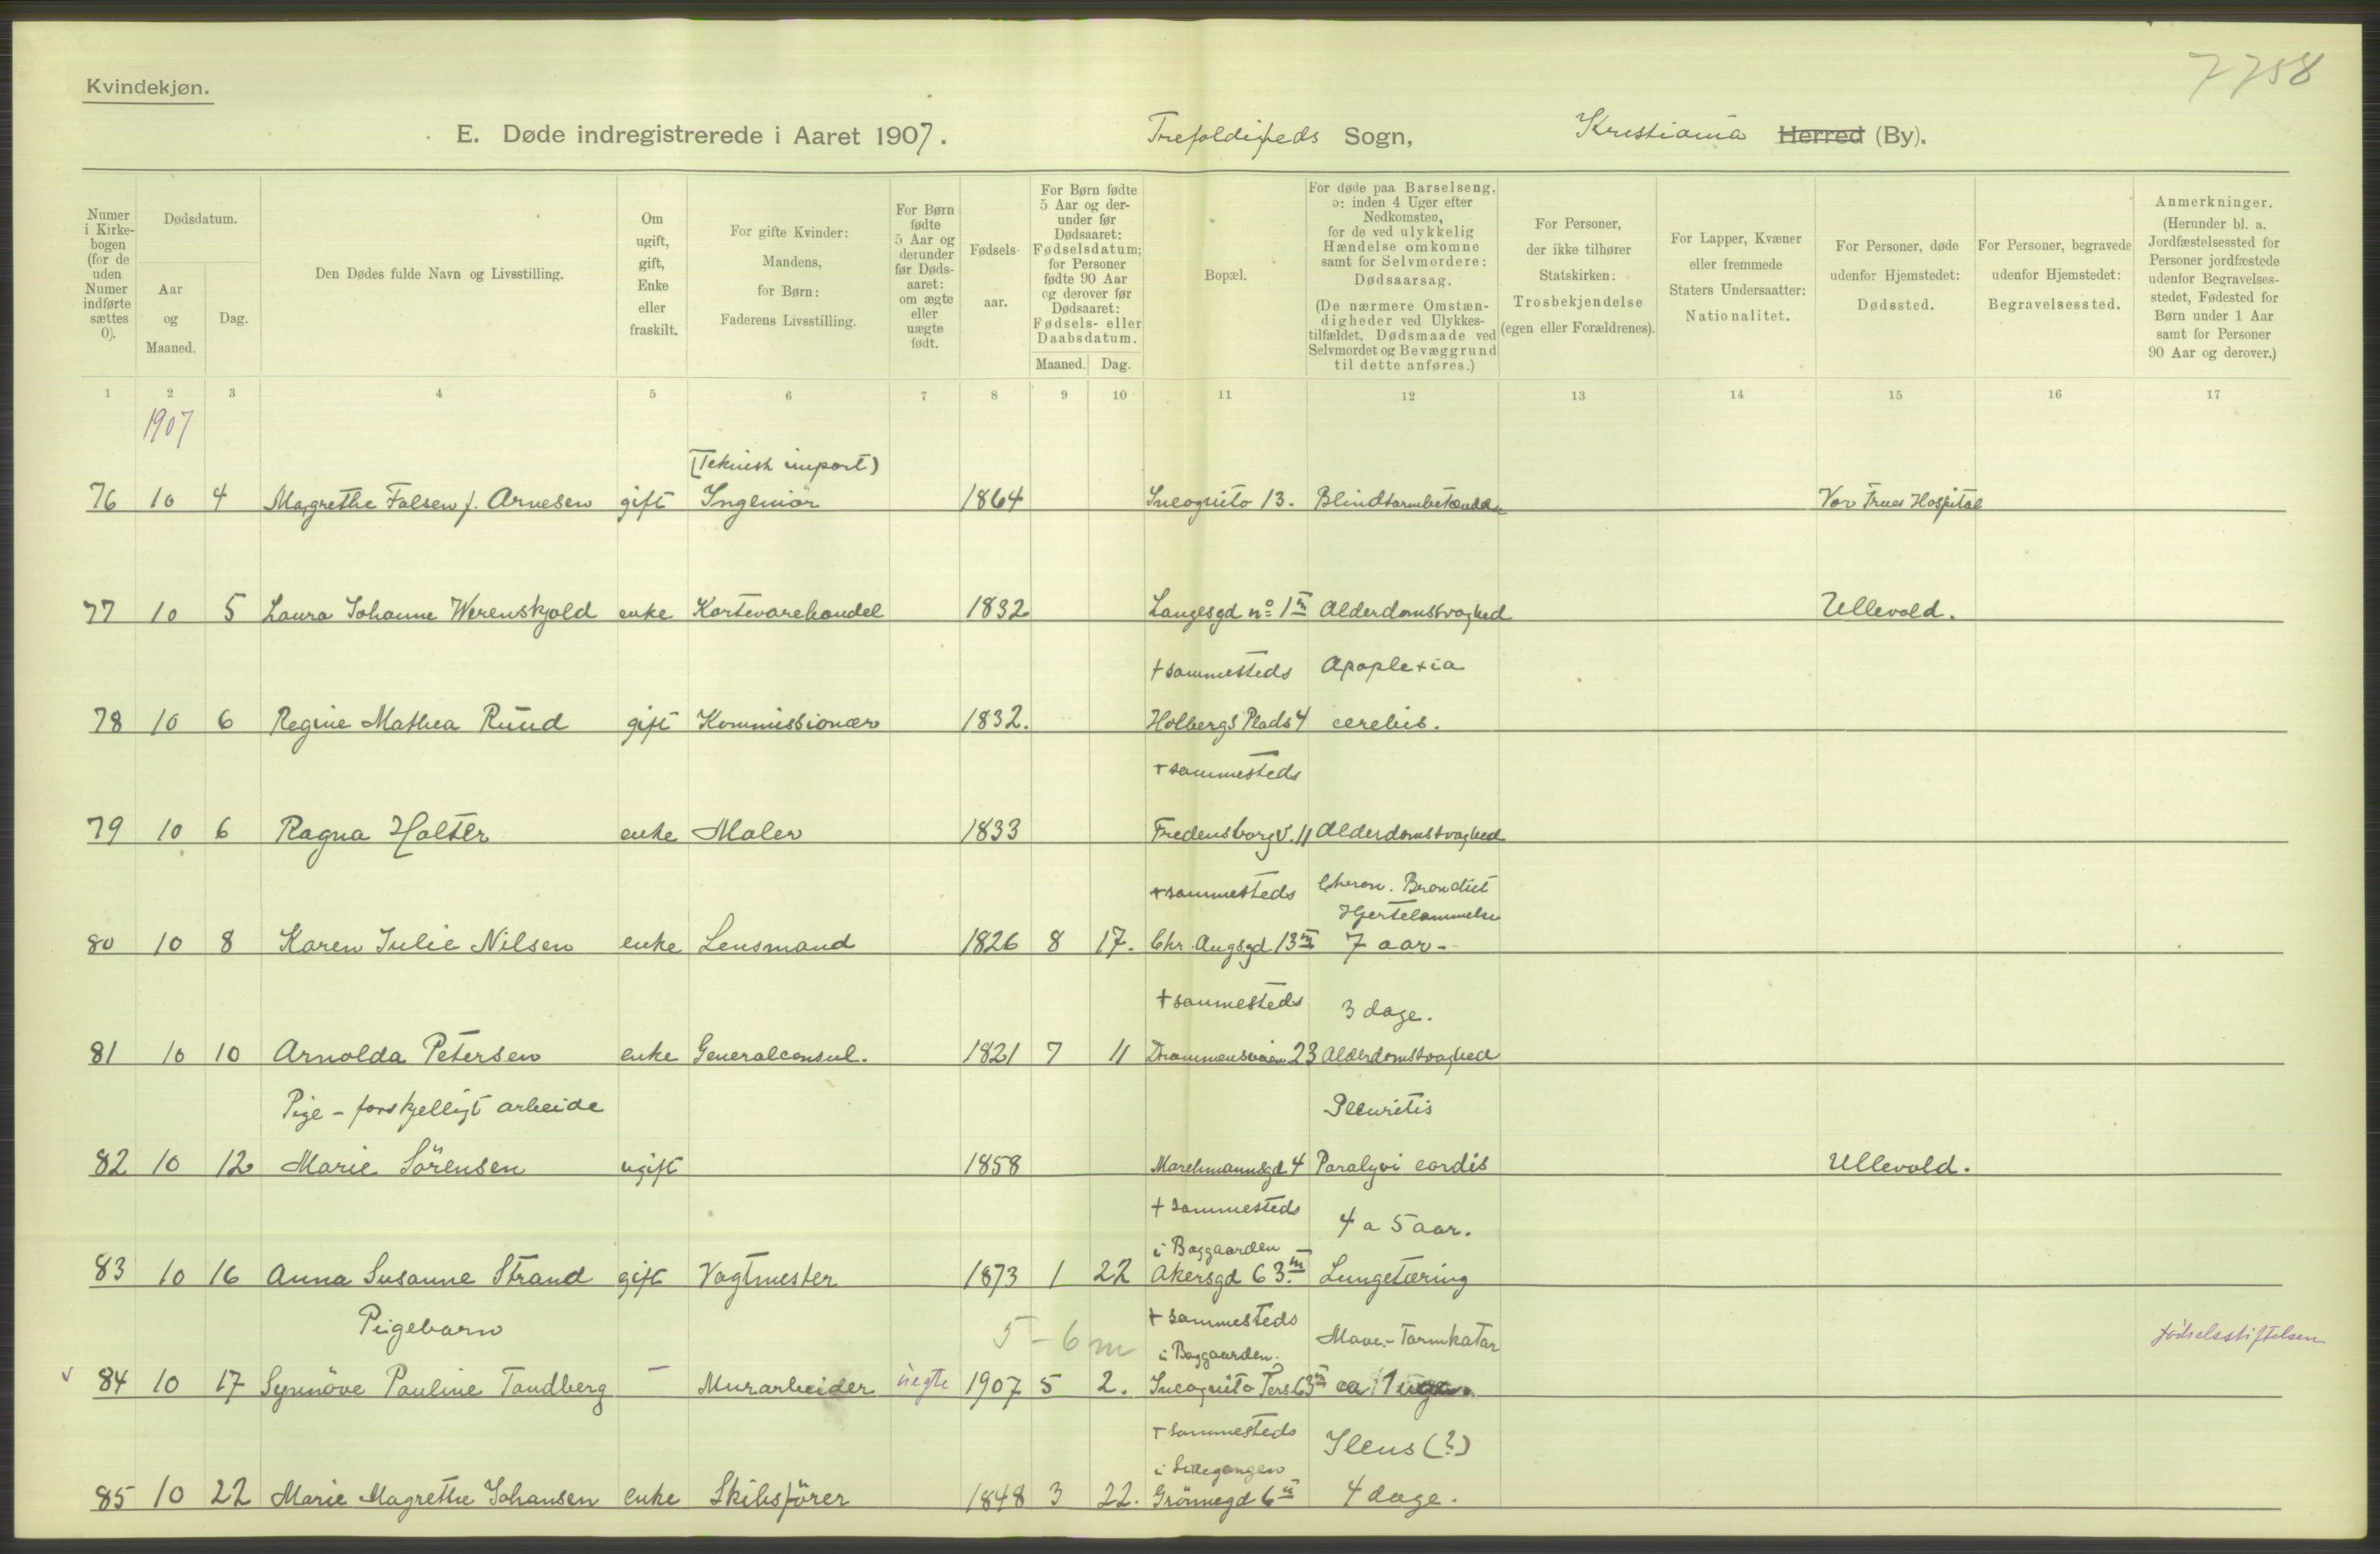 7758
Kvindekjøn.
E. Døde indregistrerede i Aaret 1907. Trefoldigheds Sogn, Kristiania Herred (By).
Numer i Kirke-bogen (for de uden Numer indførte sættes 0).
Dødsdatum.
Aar og Maaned.
Dag.
Den Dødes fulde Navn og Livsstilling.
Om ugift, gift, Enke eller fraskilt.
For gifte Kvinder: Mandens, for Børn: Faderens Livsstilling.
For Børn fødte 5 Aar og derunder før Døds-aaret: om ægte eller uægte født.
Fødsels-aar.
For Børn fødte 5 Aar og der-under før Dødsaaret: Fødselsdatum; for Personer fødte 90 Aar og derover før Dødsaaret: Fødsels- eller Daabsdatum.
Maaned. Dag.
Bopæl.
For døde paa Barselseng, ɔ: inden 4 Uger efter Nedkomsten, for de ved ulykkelig Hændelse omkomne samt for Selvmordere: Dødsaarsag. (De nærmere Omstæn-digheder ved Ulykkes-tilfældet, Dødsmaade ved Selvmordet og Bevæggrund til dette anføres.)
For Personer, der ikke tilhører Statskirken: Trosbekjendelse (egen eller Forældrenes).
For Lapper, Kvæner eller fremmede Staters Undersaatter: Nationalitet.
For Personer, døde udenfor Hjemstedet: Dødssted.
For Personer, begravede udenfor Hjemstedet: Begravelsessted.
Anmerkninger. (Herunder bl. a. Jordfæstelsessted for Personer jordfæstede udenfor Begravelses-stedet, Fødested for Børn under 1 Aar samt for Personer 90 Aar og derover.)
1 2 3 4 5 6 7 8 9 10 11 12 13 14 15 16 17
1907
(Teknisk import)
76 10 4 Magrethe Falsen f. Arnesen gift Ingeniør 1864 Incognito 13. Blindtarmbetændel. Vor Frues Hospital
77 10 5 Laura Johanne Werenskjold enke Kortevarehandel 1832 Langesgd no 1 III Alderdomssvaghed Ullevold.
+ sammesteds Apoplexia
78 10 6 Regine Mathea Ruud gift Kommissionær 1832. Holbergs Plads 4 cerebis.
+ sammesteds
79 10 6 Ragna Holter enke Maler 1833 Fredensborgv. 11 Alderdomssvaghed
+ sammesteds Chron. Bronchit
Hjertelammelse
80 10 8 Karen Julie Nilsen enke Lensmand 1826 8 17. Chr. Augsgd 13 III 7 aar -
+ sammesteds 3 dage.
81 10 10 Arnolda Petersen enke Generalconsul. 1821 7 11 Drammensveien 23 Alderdomssvaghed
Pige - forskjelligt arbeide Pleuritis
82 10 12 Marie Sörensen ugift 1858 Paralysi cordis Ullevold.
+ sammesteds 4 a 5 aar.
i Baggaarden
83 10 16 Anna Susanne Strand gift Vagtmester 1873 1 22 Akersgd 63. III Lungetæring
Pigebarn 5 - 6 m + sammesteds Mave-Tarmkatar fødselsstiftelsen
i Baggaarden.
v 84 10 17 Synnöve Pauline Tandberg — Murarbeider uegte 1907 5 2. Incognito Ters 63 III ca 1 uge.
+ sammesteds Ileus (?)
i Sidegangen
85 10 22 Marie Magrethe Johansen enke Skibsförer 1848 3 22. Grönnegd 6 II 4 dage.